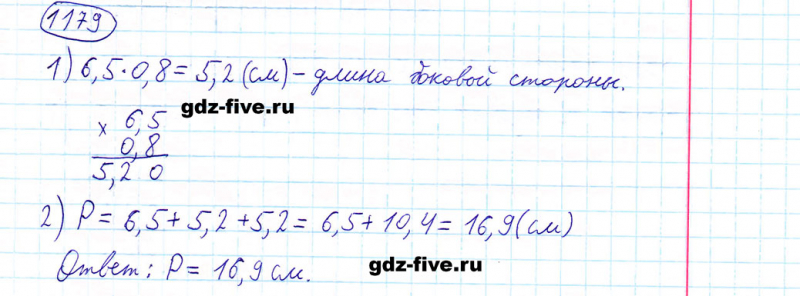 1179
1) 6,5 · 0,8 = 5,2 (см) – длина боковой стороны.
gdz-five.ru
× 6,5
0,8
5,2 0
2) P = 6,5 + 5,2 + 5,2 = 6,5 + 10,4 = 16,9 (см)
Ответ: P = 16,9 см.
gdz-five.ru